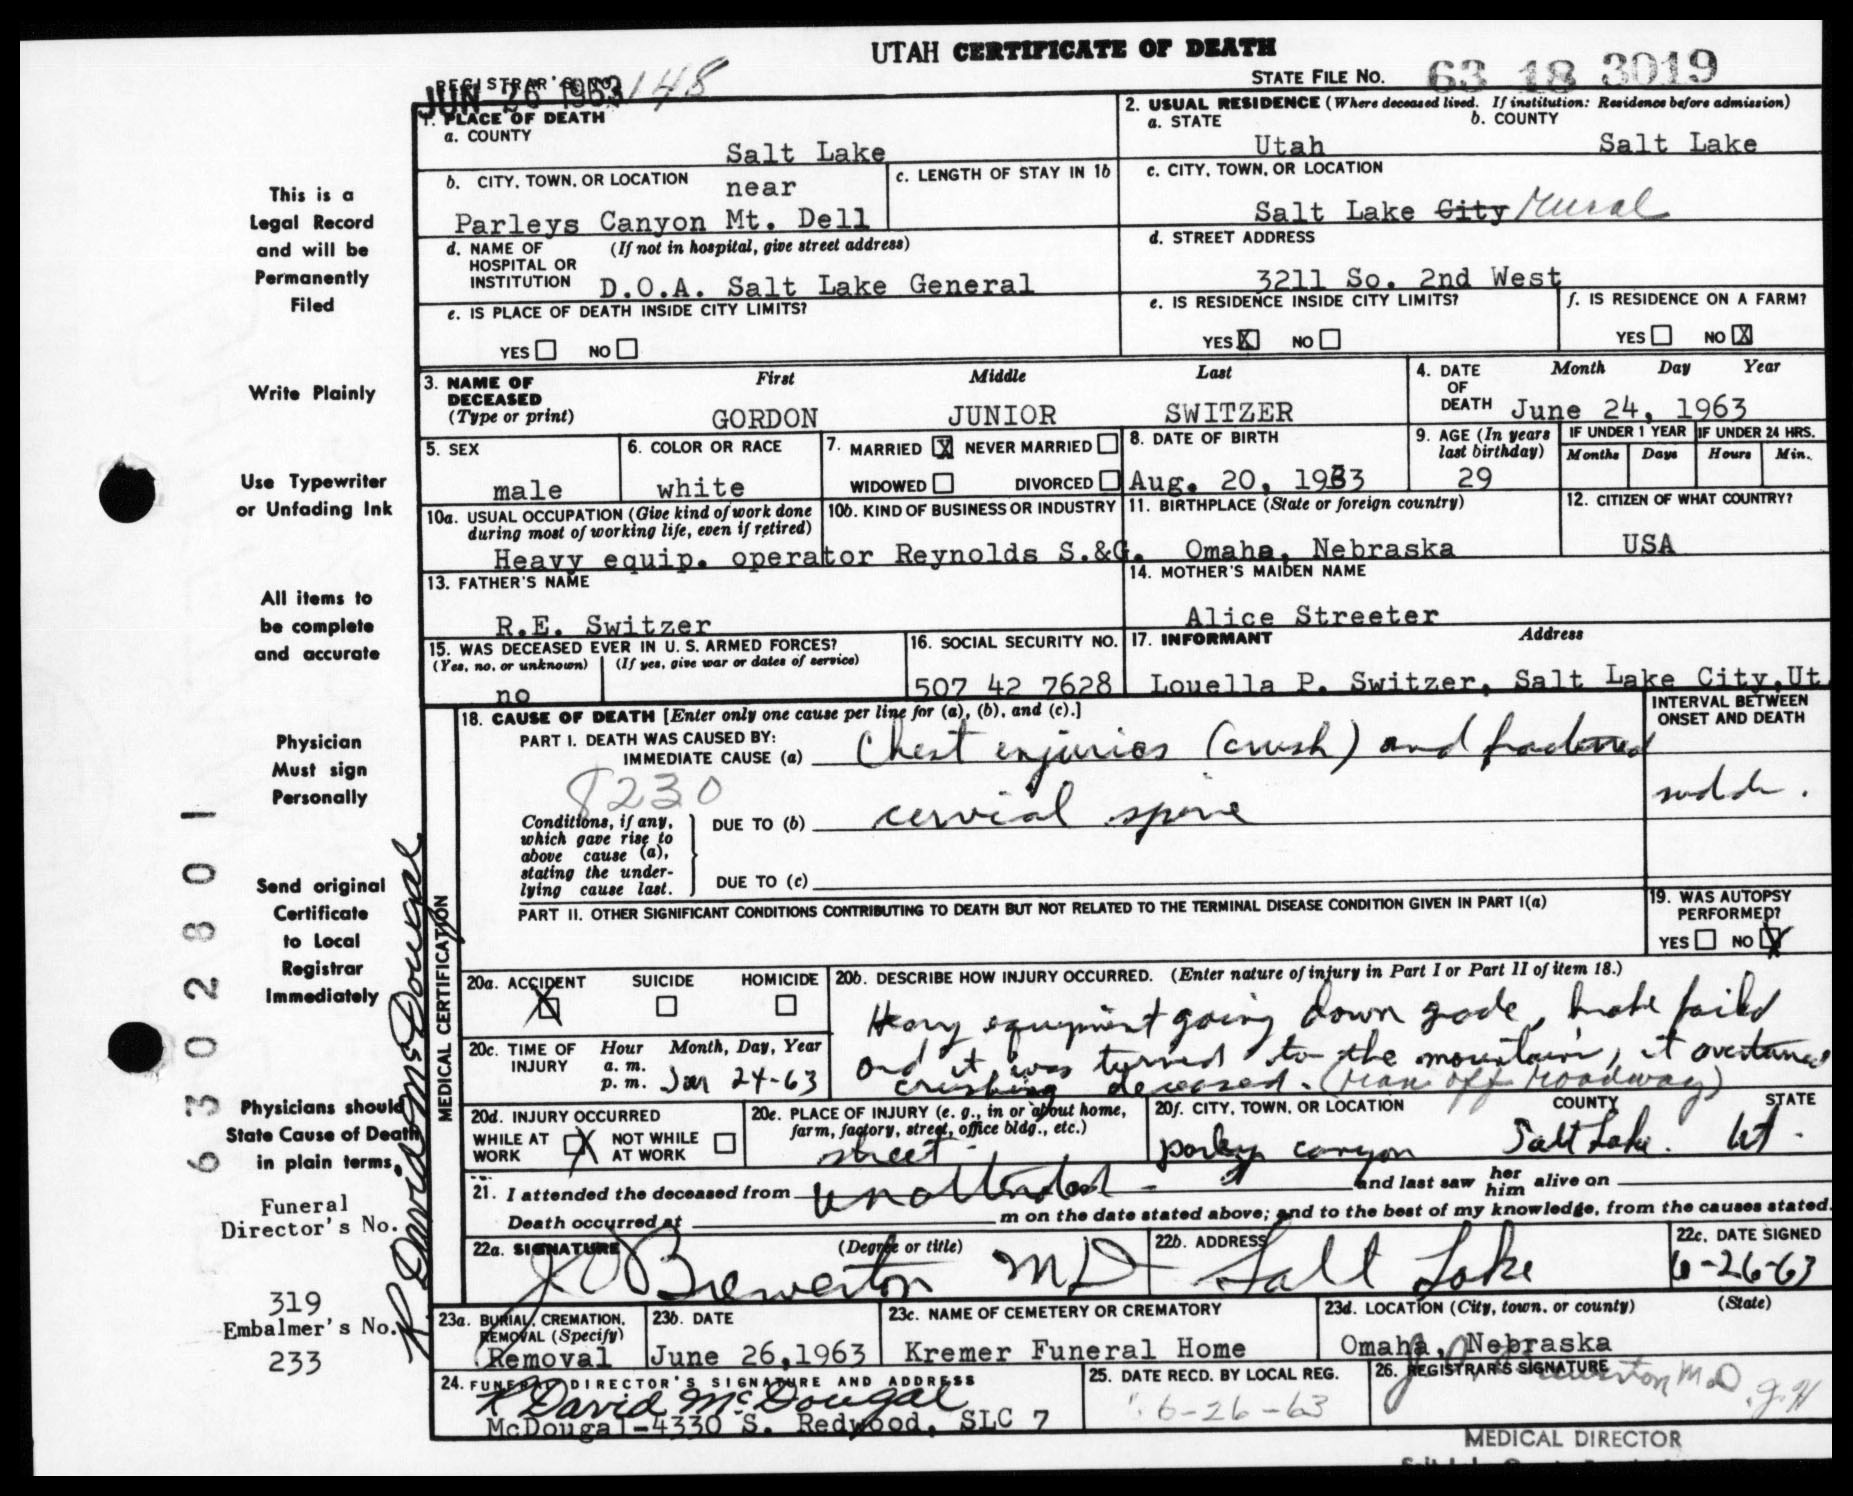 UTAH CERTIFICATE OF DEATH
REGISTRAR'S NO. 148
JUN 26 1963
STATE FILE No. 63 18 3019
1. PLACE OF DEATH
a. COUNTY
Salt Lake
b. CITY, TOWN, OR LOCATION near
Parleys Canyon Mt. Dell
c. LENGTH OF STAY IN 1b
d. NAME OF HOSPITAL OR INSTITUTION (If not in hospital, give street address)
D.O.A. Salt Lake General
e. IS PLACE OF DEATH INSIDE CITY LIMITS?
YES NO
2. USUAL RESIDENCE (Where deceased lived. If institution: Residence before admission)
a. STATE b. COUNTY
Utah Salt Lake
c. CITY, TOWN, OR LOCATION
Salt Lake City Rural
d. STREET ADDRESS
3211 So. 2nd West
e. IS RESIDENCE INSIDE CITY LIMITS?
YES X NO
f. IS RESIDENCE ON A FARM?
YES NO X
3. NAME OF DECEASED (Type or print)
First Middle Last
GORDON JUNIOR SWITZER
4. DATE OF DEATH Month Day Year
June 24, 1963
5. SEX
male
6. COLOR OR RACE
white
7. MARRIED X NEVER MARRIED
WIDOWED DIVORCED
8. DATE OF BIRTH
Aug. 20, 1933
9. AGE (In years last birthday)
29
IF UNDER 1 YEAR IF UNDER 24 HRS.
Months Days Hours Min.
10a. USUAL OCCUPATION (Give kind of work done during most of working life, even if retired)
Heavy equip. operator
10b. KIND OF BUSINESS OR INDUSTRY
Reynolds S.&G.
11. BIRTHPLACE (State or foreign country)
Omaha, Nebraska
12. CITIZEN OF WHAT COUNTRY?
USA
13. FATHER'S NAME
R.E. Switzer
14. MOTHER'S MAIDEN NAME
Alice Streeter
15. WAS DECEASED EVER IN U. S. ARMED FORCES?
(Yes, no, or unknown) (If yes, give war or dates of service)
no
16. SOCIAL SECURITY NO.
507 42 7628
17. INFORMANT Address
Louella P. Switzer, Salt Lake City, Ut
18. CAUSE OF DEATH [Enter only one cause per line for (a), (b), and (c).]
PART I. DEATH WAS CAUSED BY:
IMMEDIATE CAUSE (a) Chest enjuries (crush) and fractured
8230
Conditions, if any, which gave rise to above cause (a), stating the underlying cause last.
DUE TO (b) cervial spine
DUE TO (c)
INTERVAL BETWEEN ONSET AND DEATH
PART II. OTHER SIGNIFICANT CONDITIONS CONTRIBUTING TO DEATH BUT NOT RELATED TO THE TERMINAL DISEASE CONDITION GIVEN IN PART I(a)
19. WAS AUTOPSY PERFORMED?
YES NO X
20a. ACCIDENT X SUICIDE HOMICIDE
20b. DESCRIBE HOW INJURY OCCURRED. (Enter nature of injury in Part I or Part II of item 18.)
Heavy equipment going down grade, brake failed
and it was turned to the mountain, it overturned
crushing deceased. (ran off roadway)
20c. TIME OF INJURY Hour Month, Day, Year
a. m.
p. m. 24-63
20d. INJURY OCCURRED
WHILE AT WORK X NOT WHILE AT WORK
20e. PLACE OF INJURY (e. g., in or about home, farm, factory, street, office bldg., etc.)
street
20f. CITY, TOWN, OR LOCATION COUNTY STATE
parley canyon Salt Lake. Ut.
21. I attended the deceased from unattended and last saw her him alive on
Death occurred at m on the date stated above; and to the best of my knowledge, from the causes stated.
22a. SIGNATURE (Degree or title)
Brewerton MD
22b. ADDRESS
Salt Lake
22c. DATE SIGNED
6-26-63
23a. BURIAL, CREMATION, REMOVAL (Specify)
Removal
23b. DATE
June 26, 1963
23c. NAME OF CEMETERY OR CREMATORY
Kremer Funeral Home
23d. LOCATION (City, town, or county) (State)
Omaha, Nebraska
24. FUNERAL DIRECTOR'S SIGNATURE AND ADDRESS
R David McDougal
McDougal-4330 S. Redwood, SLC 7
25. DATE RECD. BY LOCAL REG.
6-26-63
26. REGISTRAR'S SIGNATURE
M.D. g.H
MEDICAL DIRECTOR
MEDICAL CERTIFICATION
This is a
Legal Record
and will be
Permanently
Filed
Write Plainly
Use Typewriter
or Unfading Ink
All items to
be complete
and accurate
Physician
Must sign
Personally
Send original
Certificate
to Local
Registrar
Immediately
Physicians should
State Cause of Death
in plain terms.
Funeral
Director's No.
319
Embalmer's No.
233
R David McDougal
6302801